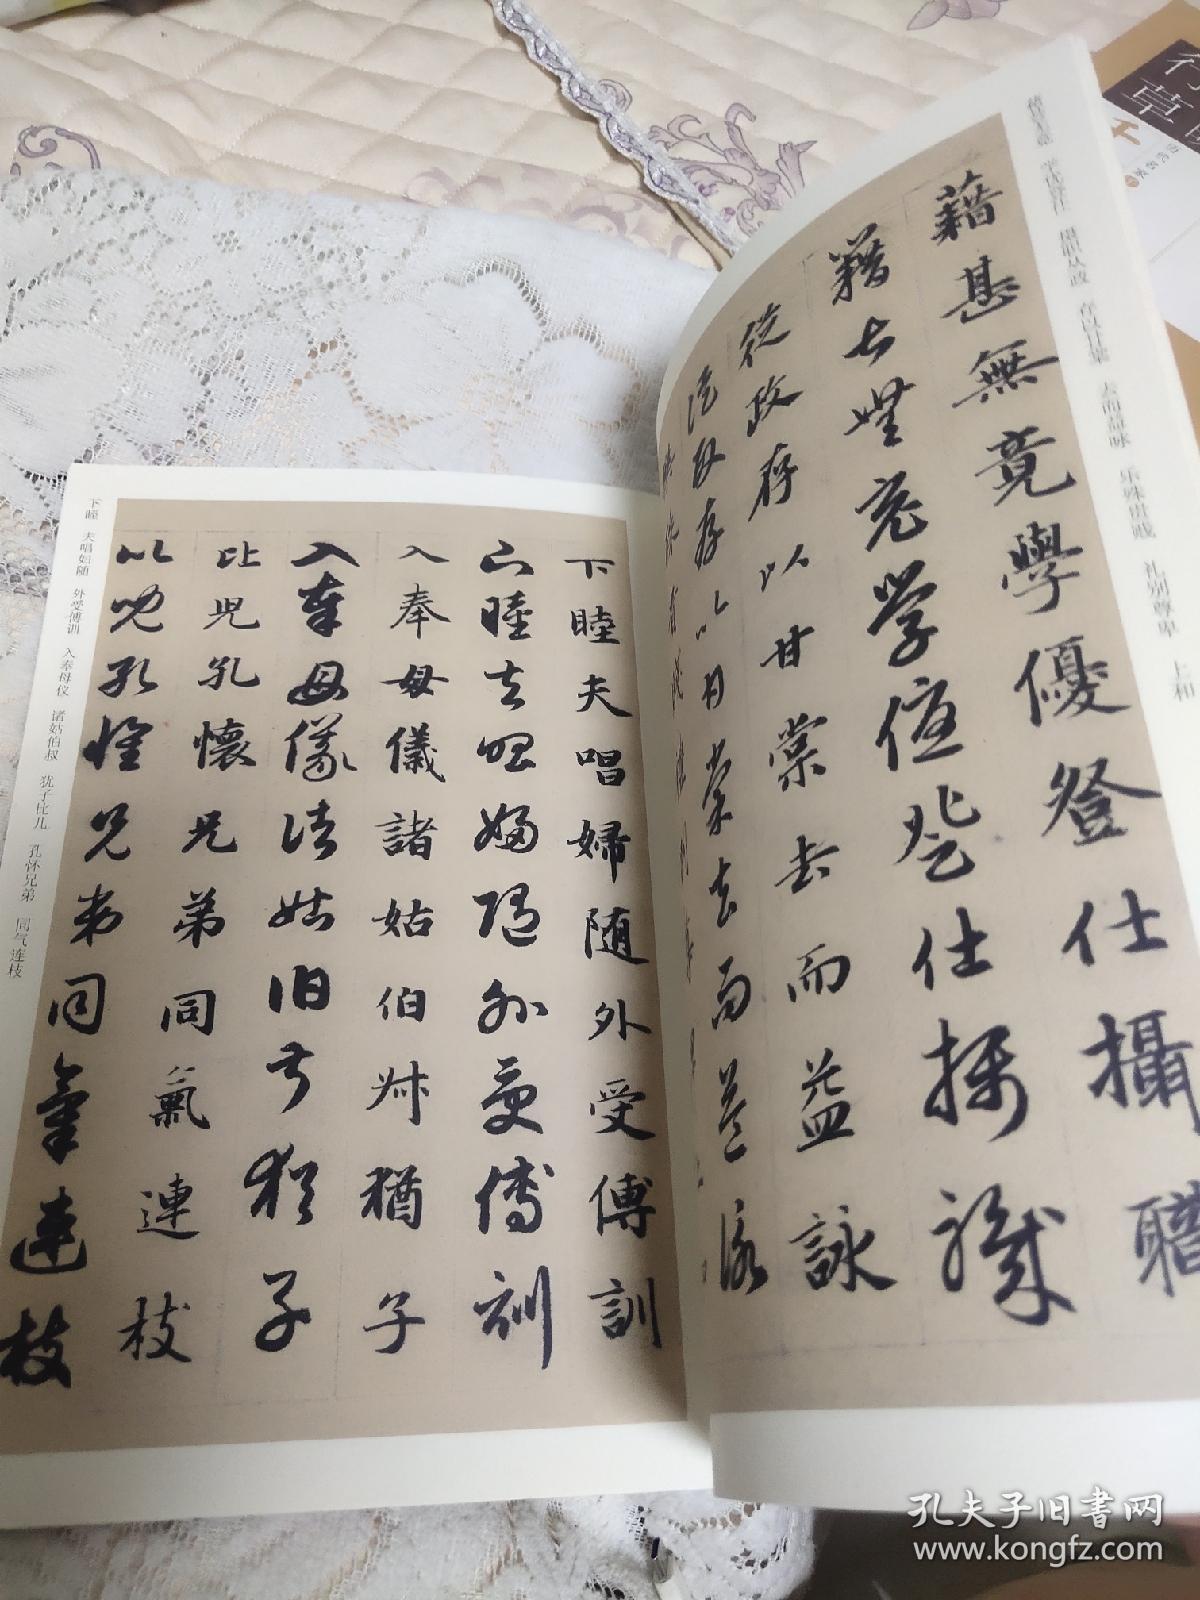 藉甚無竟學優登仕攝職
籍甚無竟學優登仕攝職
從政存以甘棠去而益詠
從政存以甘棠去而益詠
下睦夫唱婦随外受傅訓
下睦夫唱婦随外受傅訓
入奉母儀諸姑伯叔猶子
入奉母儀諸姑伯叔猶子
比兒孔懷兄弟同氣連枝
比兒孔懷兄弟同氣連枝
下睦 夫唱妇随 外受傅训 入奉母仪 诸姑伯叔 犹子比儿 孔怀兄弟 同气连枝
去而益咏 乐殊贵贱 礼别尊卑 上和
行草
千
孔夫子旧书网
www.kongfz.com